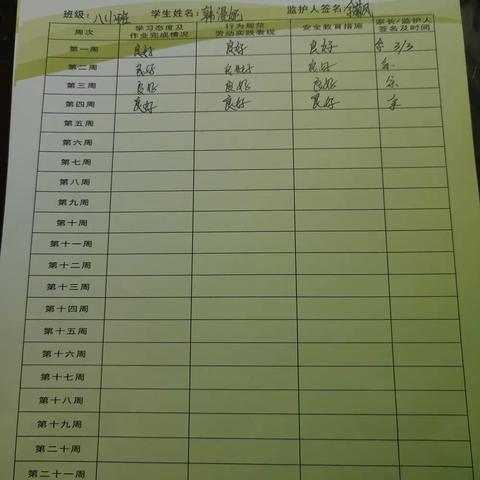 班级：八(1)班 学生姓名：韩漫妮 监护人签名：
周次 学习态度及作业完成情况 行为规范劳动实践表现 安全教育措施 家长/监护人签名及时间
第一周 良好 良好 良好 3/3
第二周 良好 良好 良好
第三周 良好 良好 良好
第四周 良好 良好 良好
第五周
第六周
第七周
第八周
第九周
第十周
第十一周
第十二周
第十三周
第十四周
第十五周
第十六周
第十七周
第十八周
第十九周
第二十周
第二十一周